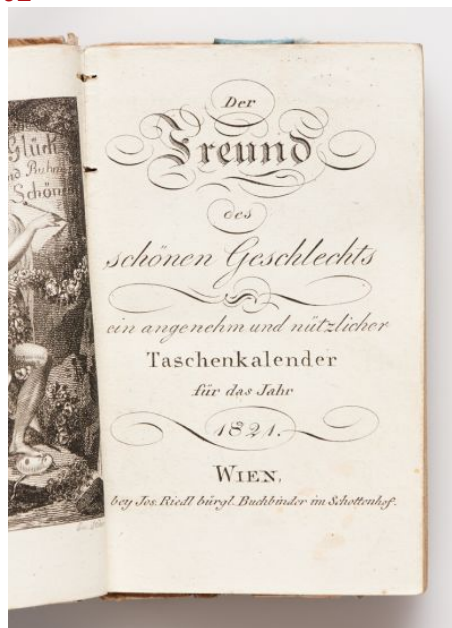 Glück
Ruhm
Schön
Der
Freund
des
schönen Geschlechts
ein angenehm und nützlicher
Taschenkalender
für das Jahr
1821.
WIEN,
bey Jos. Riedl bürgl. Buchbinder im Schottenhof.